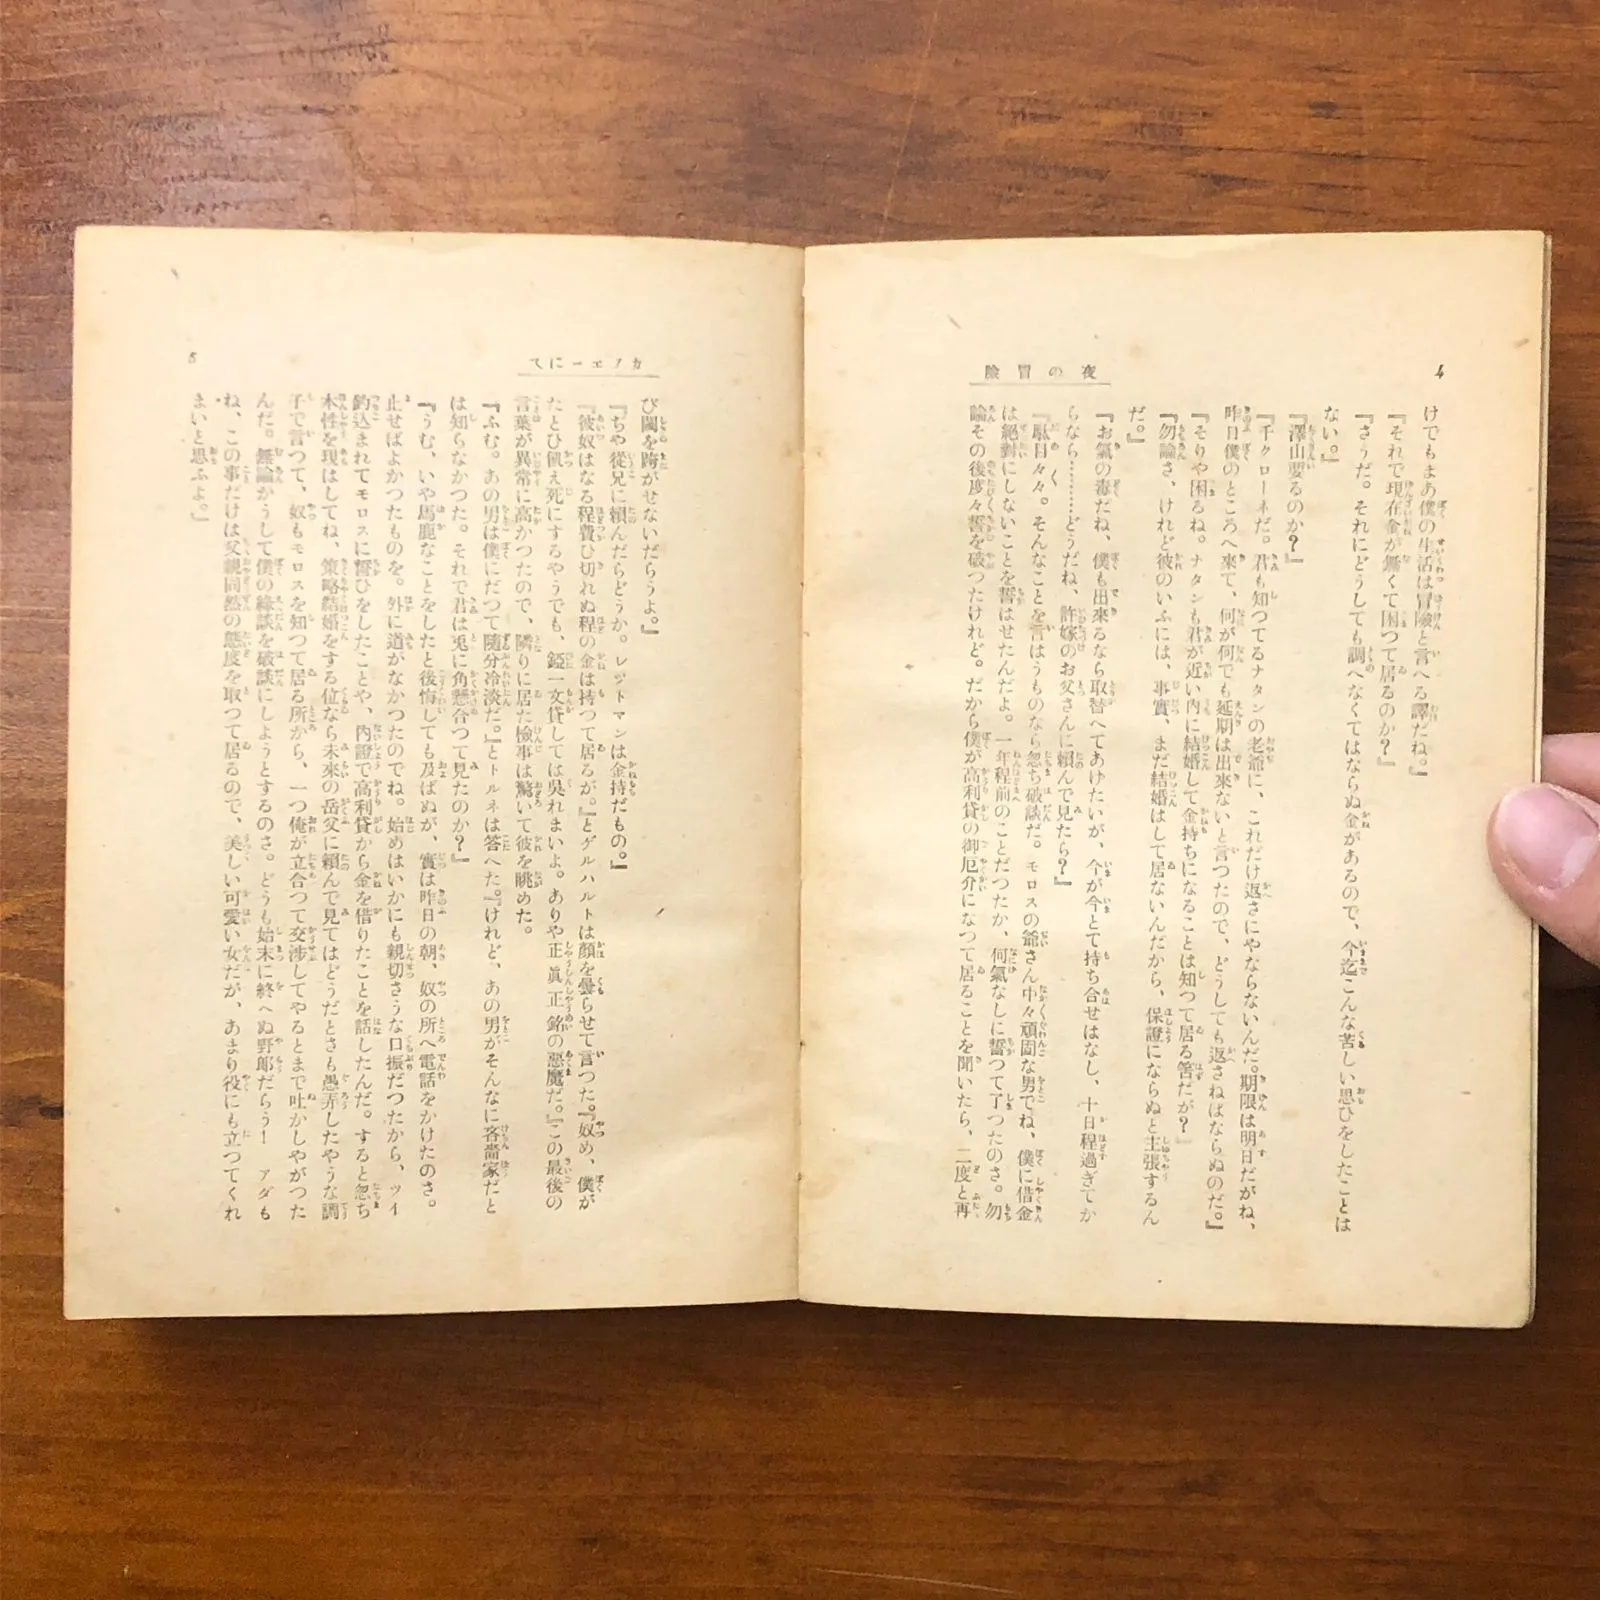 4
夜の冒險
けでもまあ僕の生活は冒險と言へる譯だね。』
『それで現在金が無くて困つて居るのか？』
『さうだ。それにどうしても調へなくてはならぬ金があるので、今迄こんな苦しい思ひをしたことは
ない。』
『澤山要るのか？』
『千クローネだ。君も知つてるナタンの老爺に、これだけ返さにやならないんだ。期限は明日だがね、
昨日僕のところへ來て、何が何でも延期は出來ないと言つたので、どうしても返さねばならぬのだ。』
『そりや困るね。ナタンも君が近い内に結婚して金持ちになることは知つて居る筈だが？』
『勿論さ、けれど彼のいふには、事實、まだ結婚はして居ないんだから、保證にならぬと主張するん
だ。』
『お氣の毒だね、僕も出來るなら取替へてあげたいが、今が今とて持ち合せはなし、十日程過ぎてか
らなら………どうだね、許嫁のお父さんに頼んで見たら？』
『駄目々々。そんなことを言はうものなら忽ち破談だ。モロスの爺さん中々頑固な男でね、僕に借金
は絕對にしないことを誓はせたんだよ。一年程前のことだつたか、何氣なしに誓つて了つたのさ。勿
論その後度々誓を破つたけれど。だから僕が高利貸の御厄介になつて居ることを聞いたら、二度と再
カフエーにて
5
び閾を跨がせないだらうよ。』
『ぢや從兄に賴んだらどうか。レジトマンは金持だもの。』
『彼奴はなる程費ひ切れぬ程の金は持つて居るが。』とゲルハルトは顏を曇らせて言つた。『奴め、僕が
たとひ飢え死にするやうでも、鐚一文貸しては吳れまいよ。ありや正眞正銘の惡魔だ。』この最後の
言葉が異常に高かつたので、隣りに居た檢事は驚いて彼を眺めた。
『ふむ。あの男は僕にだつて隨分冷淡だ。』とトルネは答へた。『けれど、あの男がそんなに吝嗇家だと
は知らなかつた。それで君は兎に角懸合つて見たのか？』
『うむ、いや馬鹿なことをしたと後悔しても及ばぬが、實は昨日の朝、奴の所へ電話をかけたのさ。
止せばよかつたものを。外に道がなかつたのでね。始めはいかにも親切さうな口振だつたから、ツイ
釣込まれてモロスに誓ひをしたことや、内證で高利貸から金を借りたことを話したんだ。すると忽ち
本性を現はしてね、策略結婚をする位なら未來の岳父に賴んで見てはどうだとさも愚弄したやうな調
子で言つて、奴もモロスを知つて居る所から、一つ俺が立合つて交渉してやるとまで吐かしやがつた
んだ。無論かうして僕の緣談を破談にしようとするのさ。どうも始末に終へぬ野郞だらう！　アダも
ね、この事だけは父親同然の態度を取つて居るので、美しい可愛い女だが、あまり役にも立つてくれ
まいと思ふよ。』